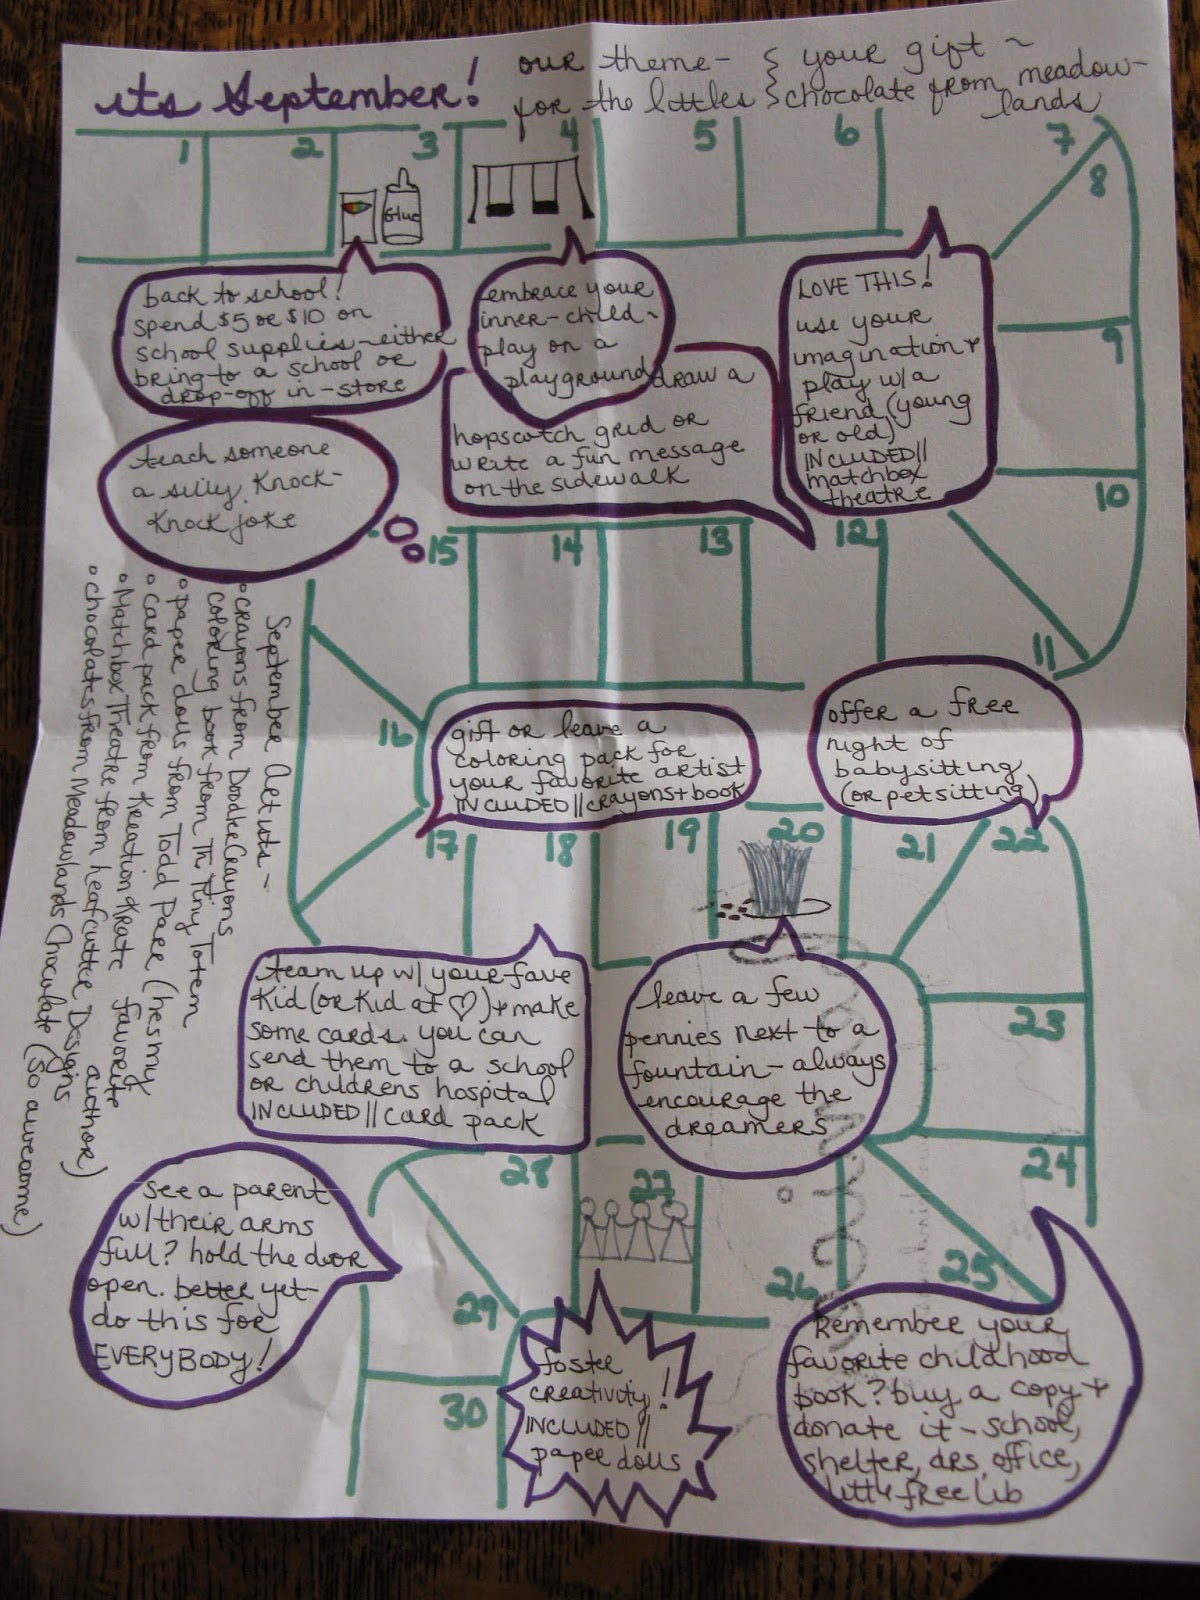 its September!
our theme-
for the littles
& your gift ~
chocolate from meadow-
lands
1
2
3
4
5
6
7
8
9
10
11
12
13
14
15
16
17
18
19
20
21
22
23
24
25
26
27
28
29
30
Glue
back to school!
spend $5 or $10 on
school supplies - either
bring to a school or
drop-off in-store
embrace your
inner-child ~
play on a
playground
draw a
hopscotch grid or
write a fun message
on the sidewalk
LOVE THIS!
use your
imagination +
play w/a
friend (young
or old)
INCLUDED//
matchbox
theatre
teach someone
a silly knock-
knock joke
September Artists ~
• crayons from Doodle Crayons
coloring book from The Tiny Totem
• paper dolls from Todd Parr (hes my
favorite
author)
• card pack from Kreation Krate
• Matchbox Theatre from heafcutte Designs
• chocolates from Meadowlands Chocolate (so awesome)
gift or leave a
coloring pack for
your favorite artist
INCLUDED//crayons+book
offer a free
night of
babysitting
(or petsitting)
team up w/ your fave
kid (or kid at ♡) + make
some cards. you can
send them to a school
or childrens hospital
INCLUDED//card pack
leave a few
pennies next to a
fountain - always
encourage the
dreamers
see a parent
w/their arms
full? hold the door
open. better yet-
do this for
EVERYBODY!
foster
creativity!
INCLUDED//
paper dolls
Remember your
favorite childhood
book? buy a copy +
donate it - school,
shelter, drs office,
little free lib